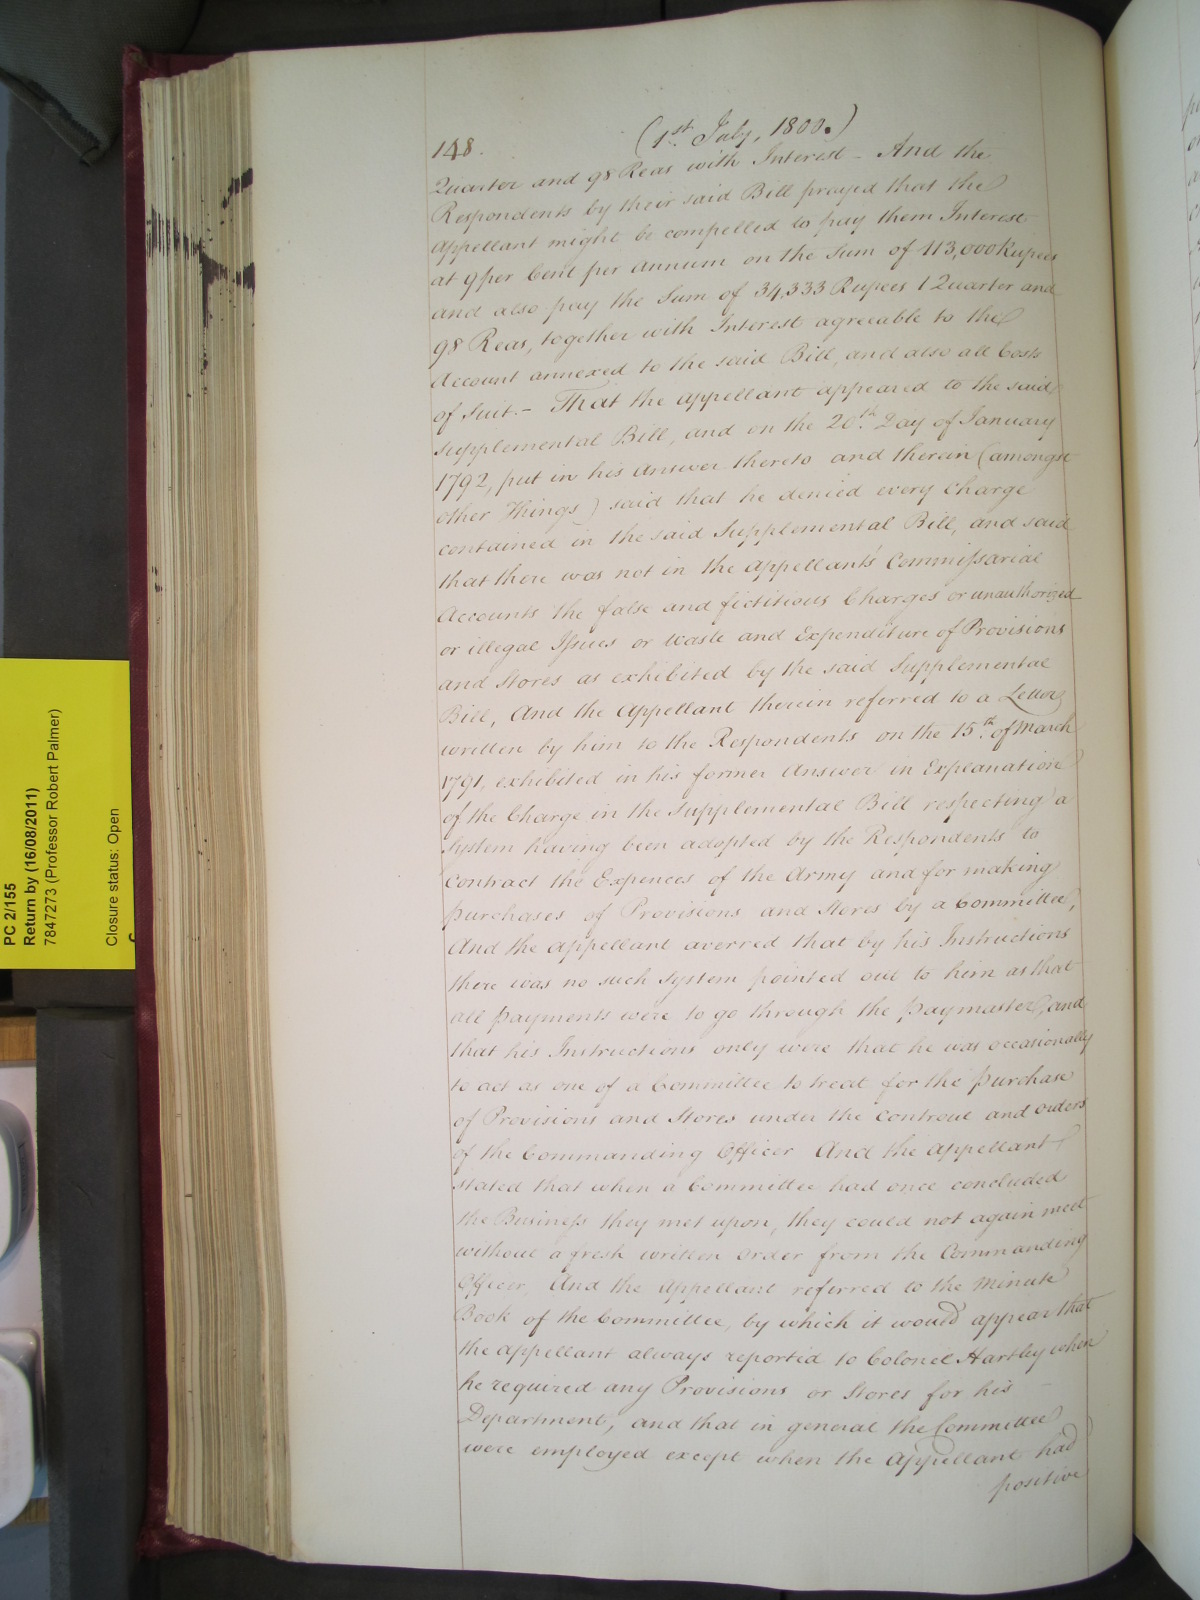 148.
(1st July, 1800.)
Quarter and 98 Reas with Interest - And the
Respondents by their said Bill prayed that the
appellant might be compelled to pay them Interest
at 9 per Cent per annum on the Sum of 113,000 Rupees
and also pay the Sum of 34,333 Rupees 1 Quarter and
98 Reas, together with Interest agreeable to the
Account annexed to the said Bill, and also all Costs
of Suit. - That the appellant appeared to the said
supplemental Bill, and on the 20th Day of January
1792, put in his answer thereto and therein (amongst
other Things) said that he denied every Charge
contained in the said Supplemental Bill, and said
that there was not in the appellant's Commissarial
Accounts the false and fictitious Charges or unauthorized
or illegal Issues or waste and Expenditure of Provisions
and Stores as exhibited by the said Supplemental
Bill, And the appellant therein referred to a Letter
written by him to the Respondents on the 15th of March
1791, exhibited in his former Answer in Explanation
of the Charge in the Supplemental Bill respecting a
System having been adopted by the Respondents to
contract the Expences of the Army and for making
purchases of Provisions and Stores by a Committee,
And the appellant averred that by his Instructions
there was no such System pointed out to him as that
all payments were to go through the paymaster, and
that his Instructions only were that he was occasionally
to act as one of a Committee to treat for the purchase
of Provisions and Stores under the controul and orders
of the Commanding Officer And the appellant
stated that when a Committee had once concluded
the Business they met upon, they could not again meet
without a fresh written order from the Commanding
Officer, And the appellant referred to the Minute
Book of the Committee, by which it would appear that
the appellant always reported to Colonel Hartley when
he required any Provisions or Stores for his
Department, and that in general the Committee
were employed except when the appellant had
positive
PC 2/155
Return by (16/08/2011)
7847273 (Professor Robert Palmer)
Closure status: Open